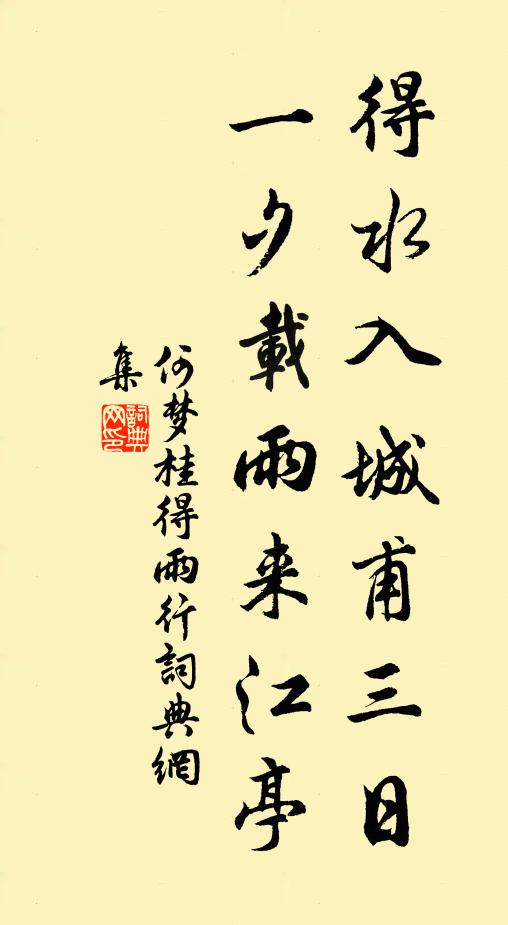 得水入城甫三日
一夕載雨来江亭
何梦桂得雨行詞典網
集
詞典
网印